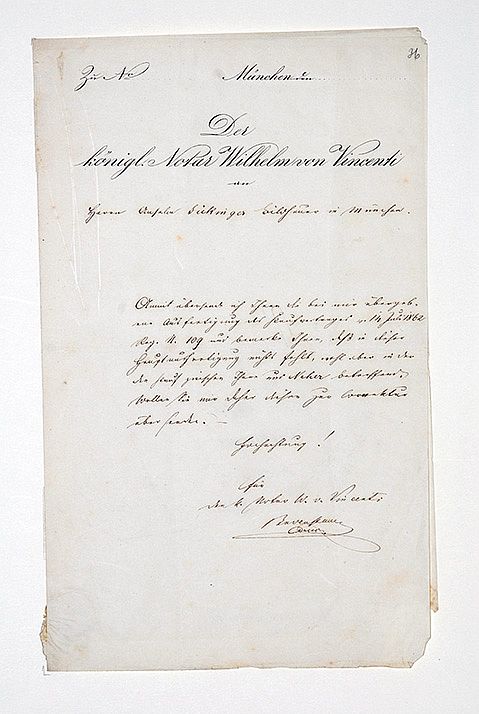 36
Zu No München den
Der
königl. Notar Wilhelm von Vincenti
an
Herrn Anselm Sickinger Bildhauer in München.
Anmit übersende ich Ihnen die bei mir übergeb-
ene Ausfertigung des Kaufvertrages v. 14. Juli 1862
Reg. N. 109 und bemerke Ihnen, daß in dieser
Hauptausfertigung nichts fehlt, wohl aber in der
den Kauf zwischen Ihnen und betreffend,
Wollen Sie mir daher diese zur Correktur
übersenden.
Hochachtung!
für
den k. Notar W. v. Vincenti